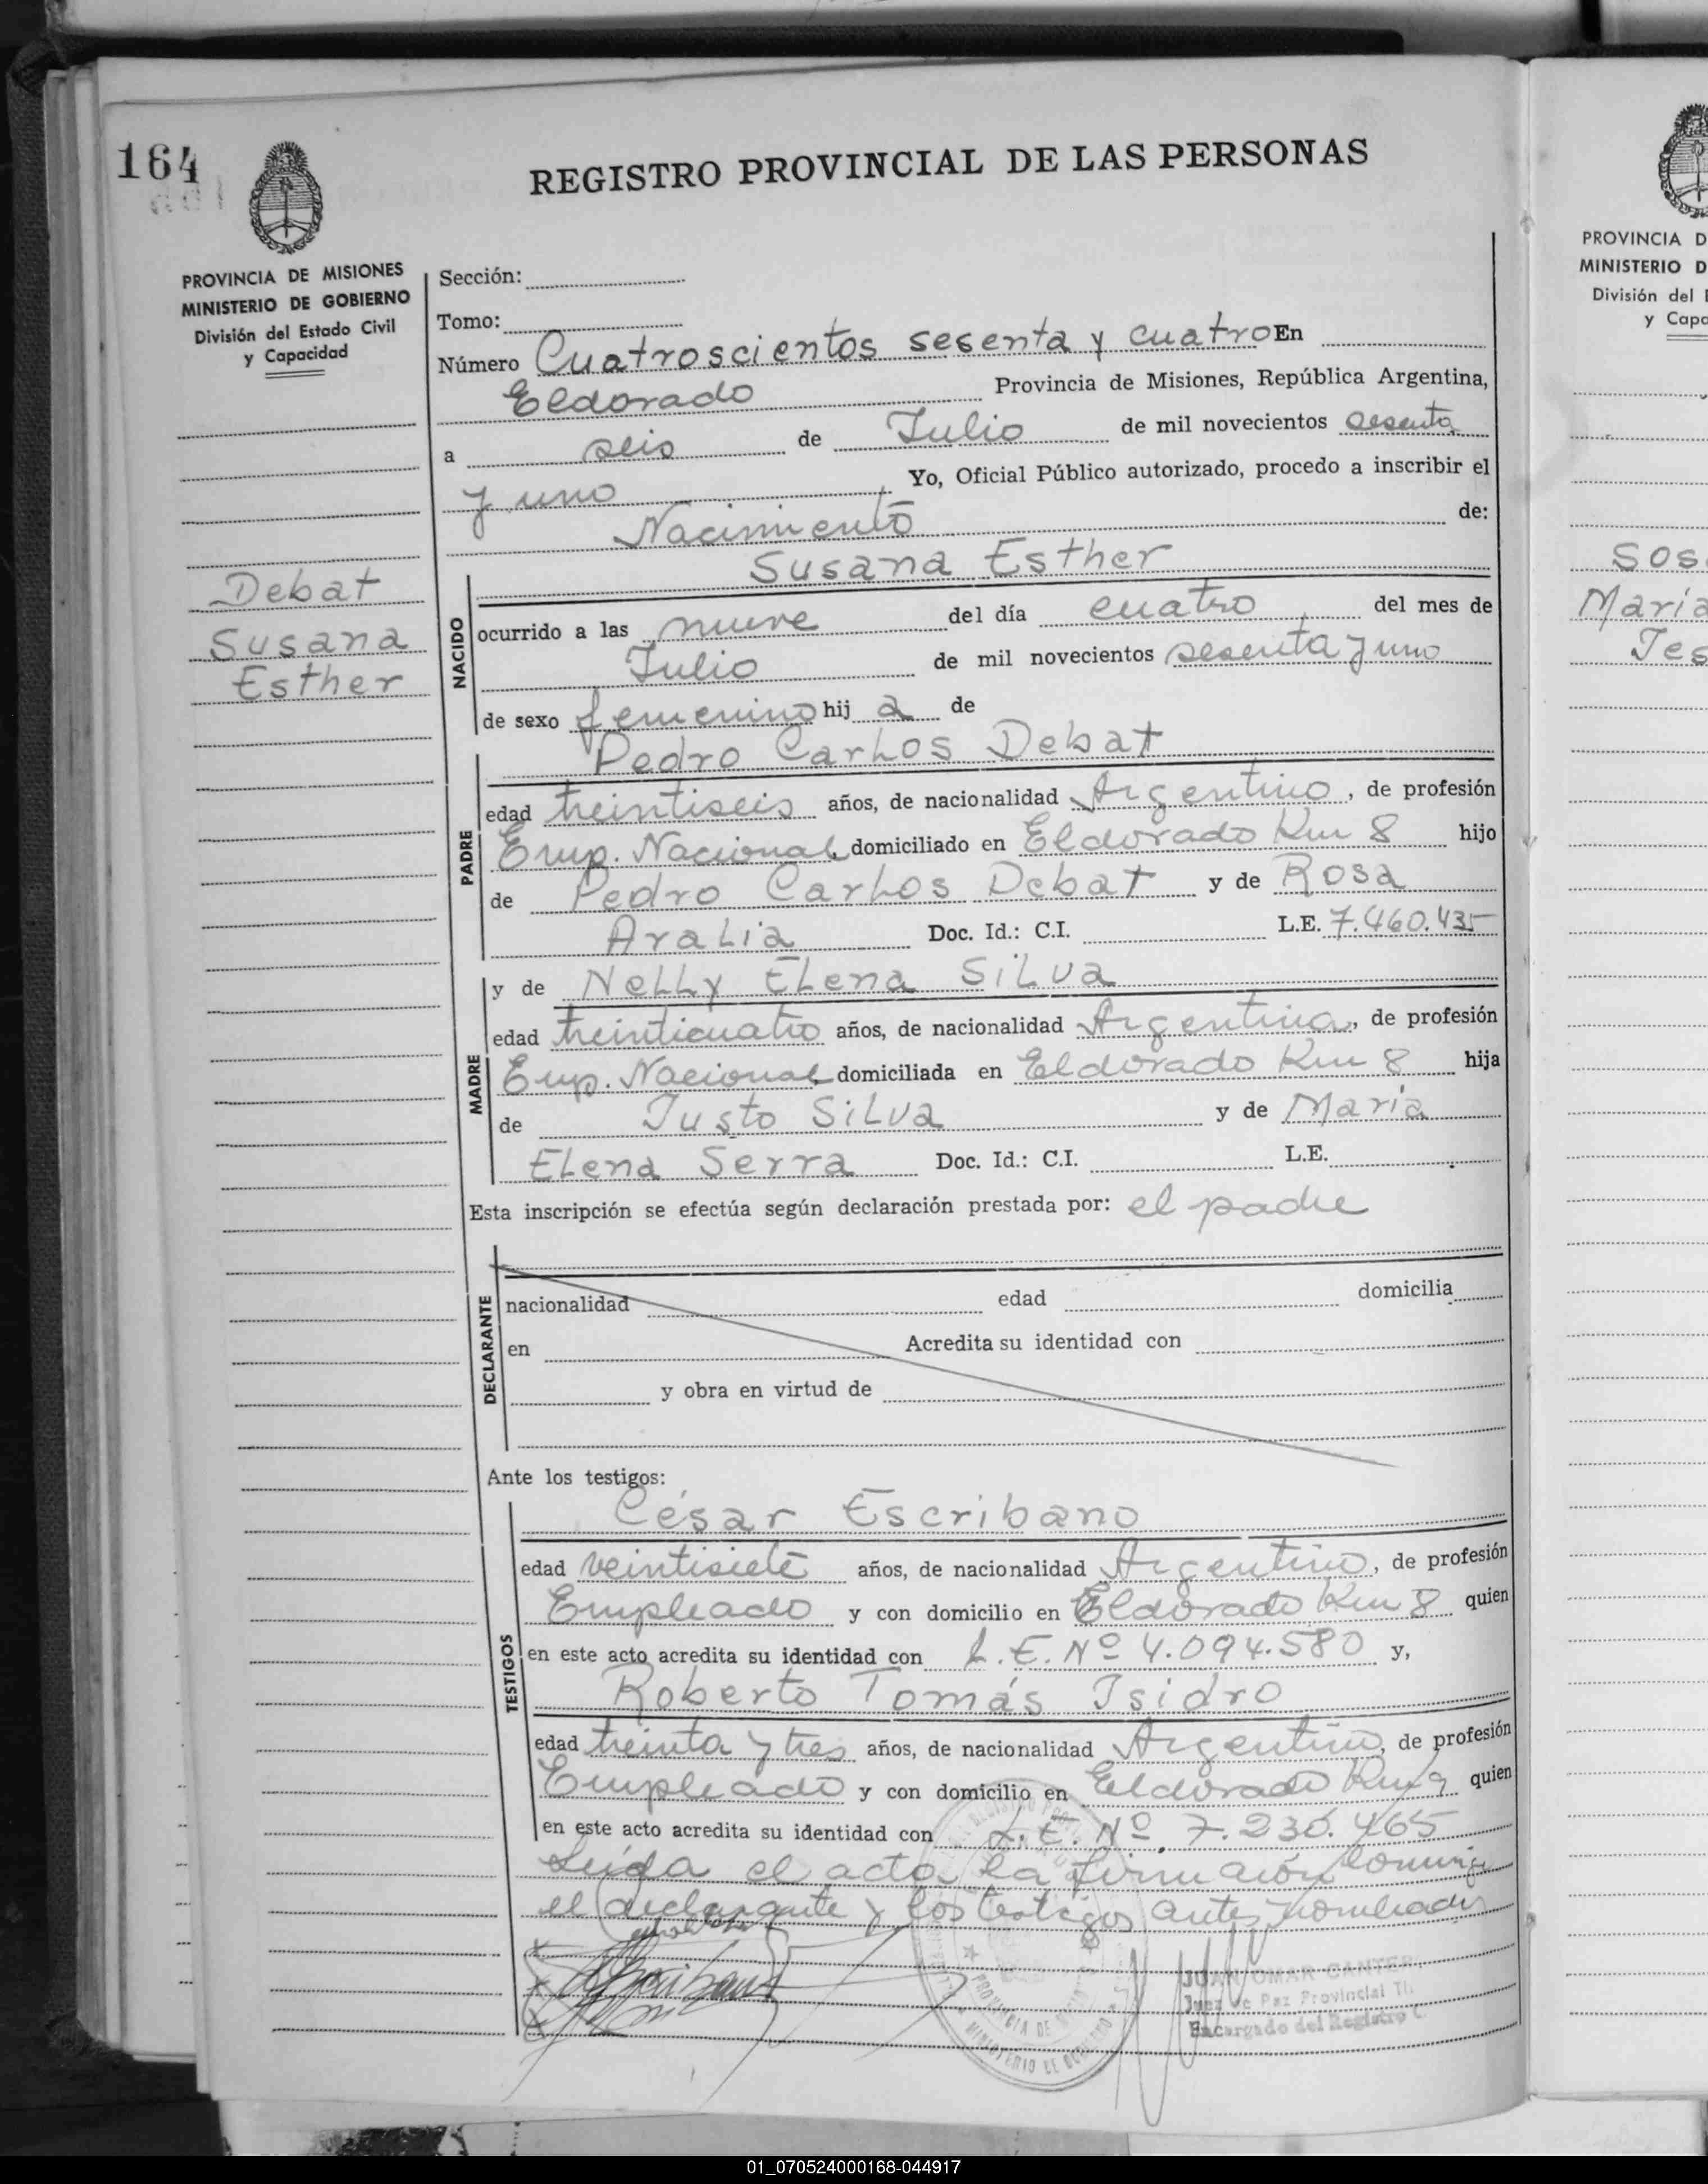 164
REGISTRO PROVINCIAL DE LAS PERSONAS
PROVINCIA DE MISIONES
MINISTERIO DE GOBIERNO
División del Estado Civil
y Capacidad
Debat
Susana
Esther
Sección:
Tomo:
Número Cuatroscientos sesenta y cuatro En
Eldorado Provincia de Misiones, República Argentina,
a seis de Julio de mil novecientos sesenta
y uno Yo, Oficial Público autorizado, procedo a inscribir el
Nacimiento de:
Susana Esther
NACIDO
ocurrido a las nueve del día cuatro del mes de
Julio de mil novecientos sesenta y uno
de sexo femenino hij a de
Pedro Carlos Debat
PADRE
edad treintiseis años, de nacionalidad Argentino, de profesión
Emp. Nacional domiciliado en Eldorado Km 8 hijo
de Pedro Carlos Debat y de Rosa
Aralia Doc. Id.: C.I. L.E. 7.460.435
y de Nelly Elena Silva
MADRE
edad treinticuatro años, de nacionalidad Argentina, de profesión
Emp. Nacional domiciliada en Eldorado Km 8 hija
de Justo Silva y de María
Elena Serra Doc. Id.: C.I. L.E.
Esta inscripción se efectúa según declaración prestada por: el padre
DECLARANTE
nacionalidad edad domicilia
en Acredita su identidad con
y obra en virtud de
Ante los testigos:
César Escribano
TESTIGOS
edad veintisiete años, de nacionalidad Argentino, de profesión
Empleado y con domicilio en Eldorado Km 8 quien
en este acto acredita su identidad con L.E. Nº 4.094.580 y,
Roberto Tomás Isidro
edad treinta y tres años, de nacionalidad Argentino, de profesión
Empleado y con domicilio en Eldorado Km 9 quien
en este acto acredita su identidad con L.E. Nº 7.230.465
Leída el acta la firman conmigo
el declarante y los testigos antes nombrados
JUAN OMAR CANTER
Juez de Paz Provincial
Encargado del Registro C.
PROVINCIA DE
MINISTERIO DE GOBIERNO
PROVINCIA D
MINISTERIO D
División del
y Capa
Sos
María
Jes
01_070524000168-044917